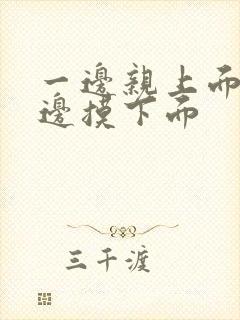 一邊親上面
邊摸下面
三千渡